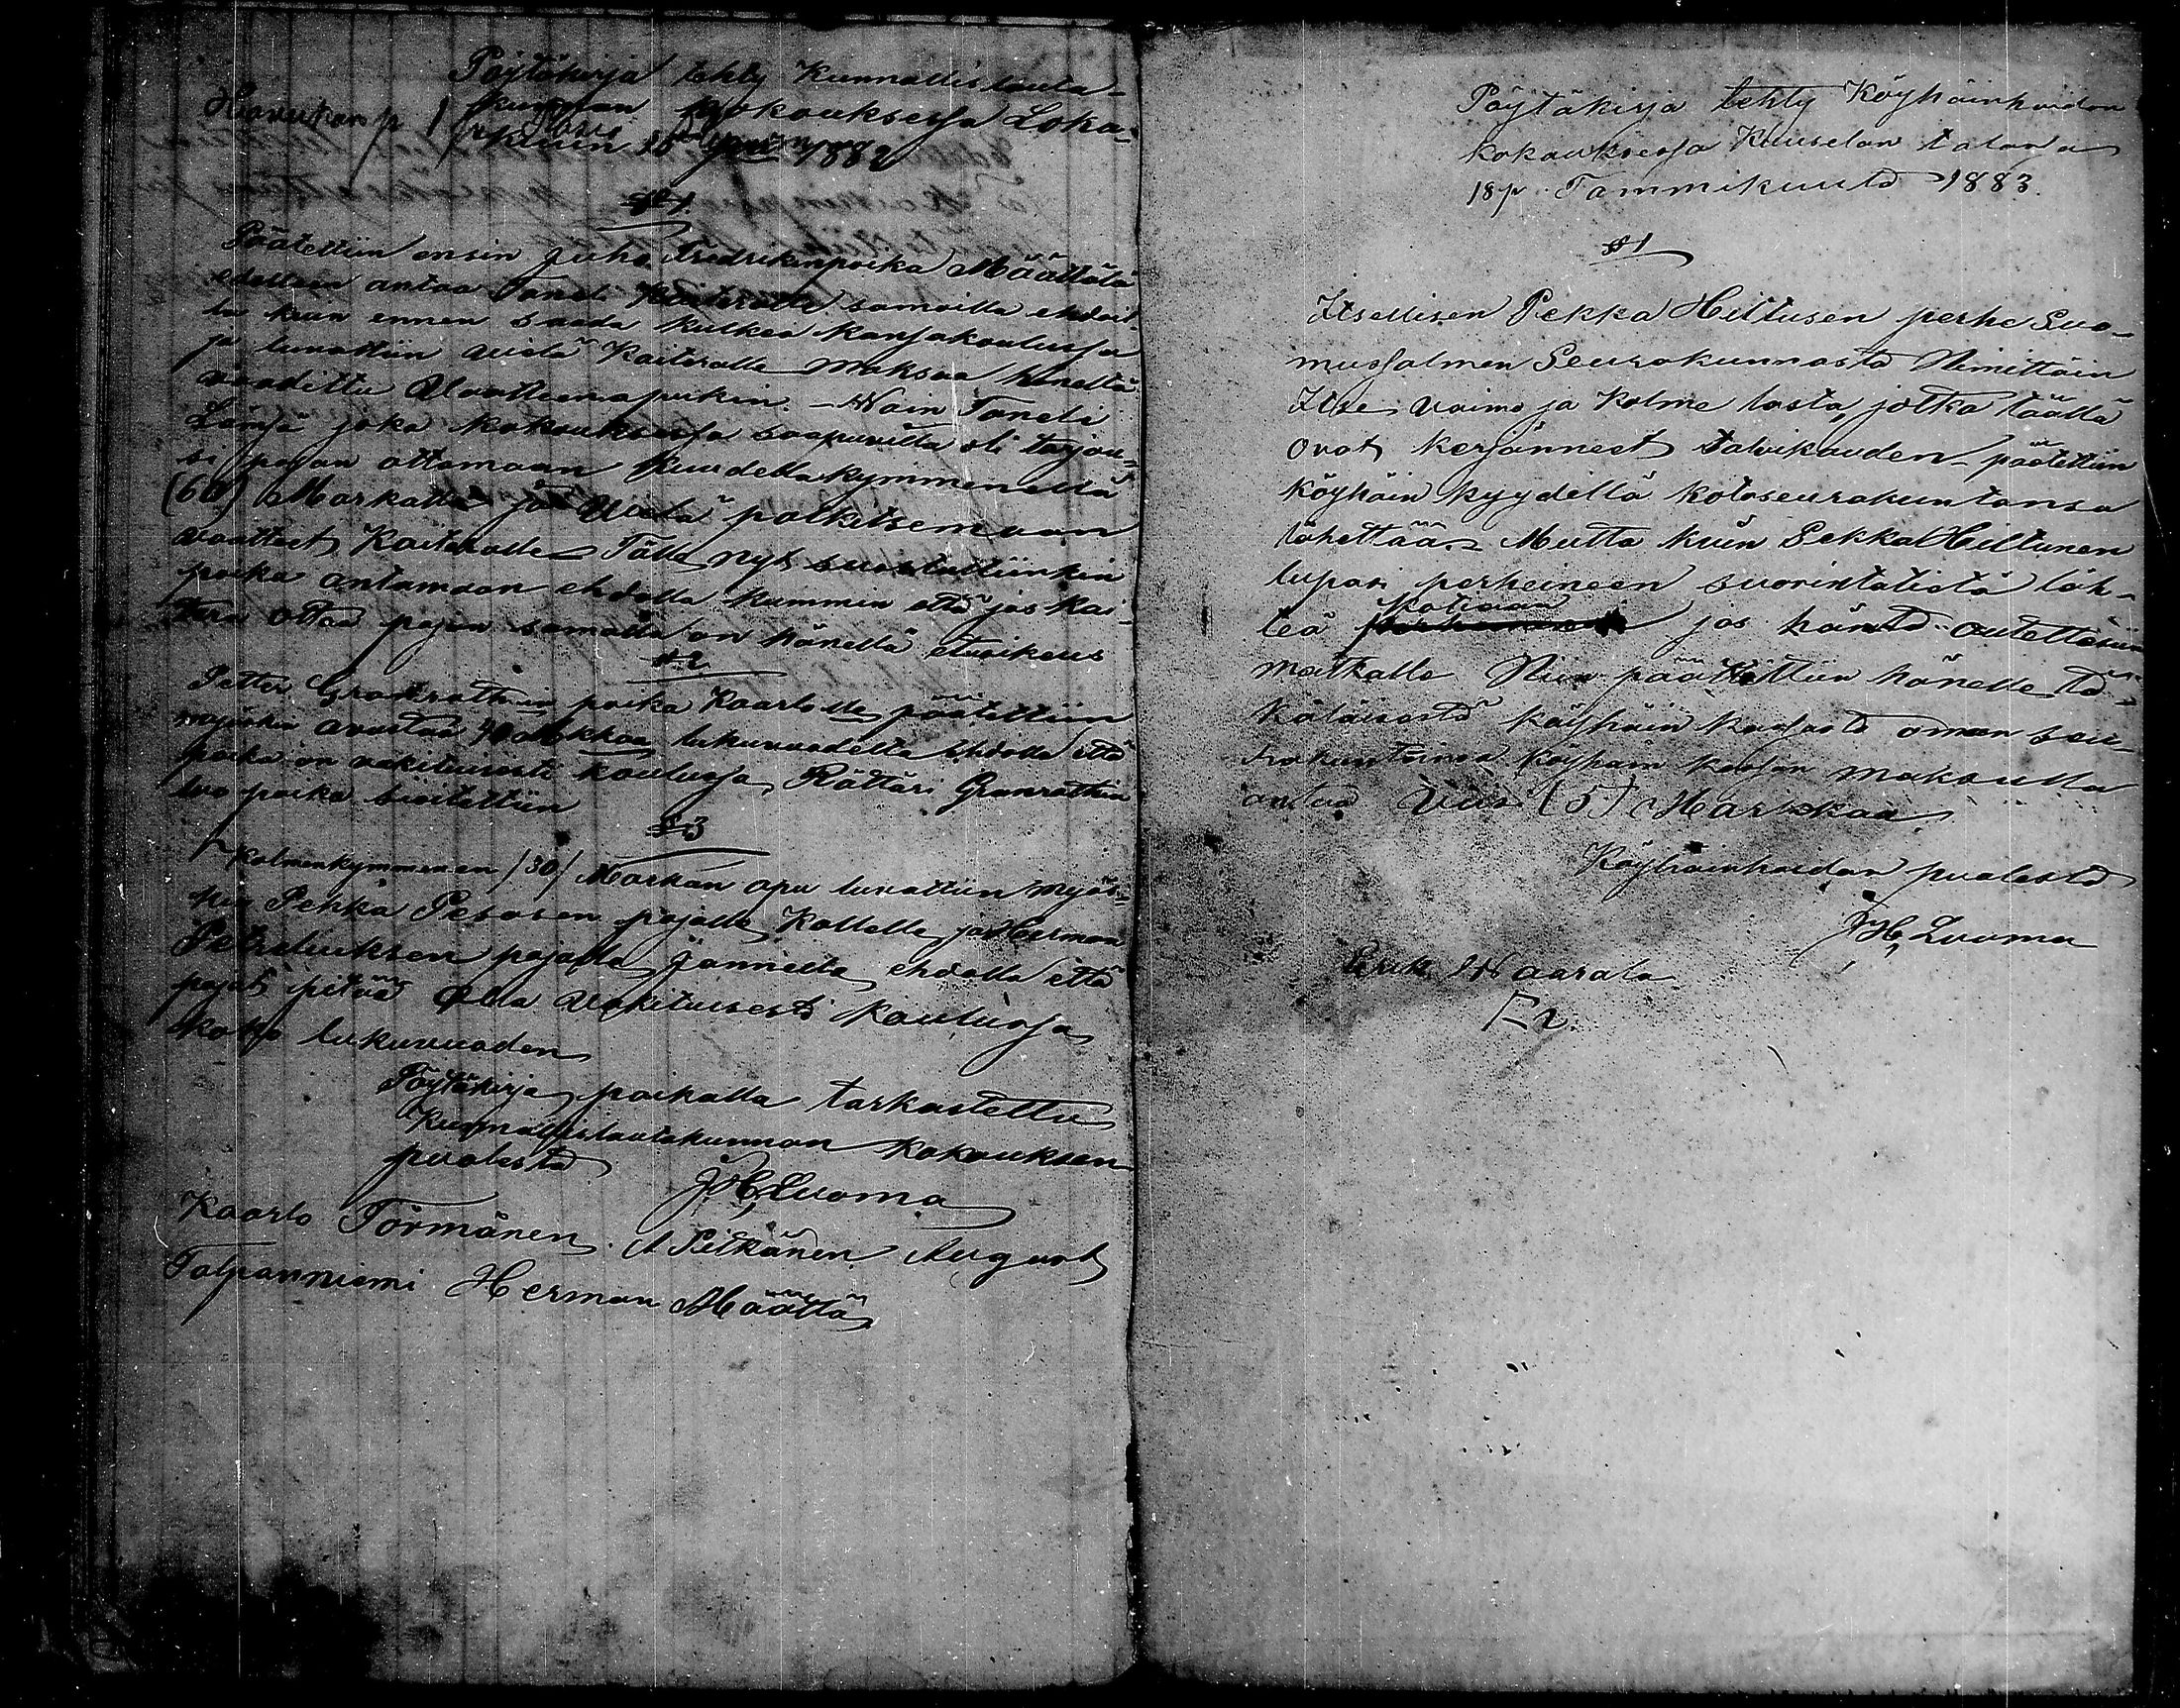 Pöytäkirja tehty Kunnallislauta-
kunnan kokouksessa Loka-
kuun 28 1882
§ 1
Päätettiin ensin Juho Fredrikinpoika Määttälä
edelleen antaa Taneli Kaiteralle samoilla ehdoil-
la kuin ennen saada kulkea kansakoulussa
ja luvattiin vielä Kaiteralle maksaa häneltä
vaadittu Vaatteenapukin. - Wain Taneli
Lämsä joka kokouksessa saapuvilla oli tarjou-
si pojan ottamaan Kuudellakymmenellä
(60) Markalla ja Vielä palkitsemaan
vaatteet Kaiteralle Tälle nyt suostuttiinkin
poika antamaan ehdolla kummin että jos Kai-
tera ottaa pojan samalla on hänellä etuoikeus
§ 2
Petter Granrothin poika Kaarlolle päätettiin
myöskin avustaa 40 Markkaa lukuvuodelta ehdolla että
poika on vakituisesti koulussa, Rättäri Granrothin
luo poika sioitettiin
§ 3
Kolmenkymmenen /30/ Markan apu luvattiin myös-
kin Pekka Pesosen pojalle Kallelle ja Herman
Petreliuksen pojalle Jannelle ehdolla että
pojat pitää olla vakituisesti koulussa
koko lukuvuoden
Pöytäkirja paikalla tarkastettu
Kunnallislautakunnan kokouksen
puolesta J. H. Luoma
Kaarlo Törmänen. A Pitkänen August
Talpanniemi Herman Määttä
Pöytäkirja tehty Köyhäinhoidon
kokouksessa Kuuselan talossa
18p. Tammikuuta 1883.
§ 1
Itsellisen Pekka Hiltusen perhe Suo-
mussalmen Seurakunnasta Nimittäin
Itse vaimo ja Kolme lasta, jotka täällä
ovat kerjänneet talvikauden - päätettiin
köyhäin kyydillä kotoseurakuntansa
lähettää. - Mutta kuin Pekka Hiltunen
lupasi perheineen suorintatietä läh-
teä kotiaan jos häntä autettasiin
matkalle Niin päätettiin hänelle tä-
käläisestä köyhäin kassasta oman seu-
rakuntainsa köyhäin kassan maksulla
antaa Viis (5) Markkaa.
Köyhäinhoidon puolesta
J. H. Luoma
Erik Waarala